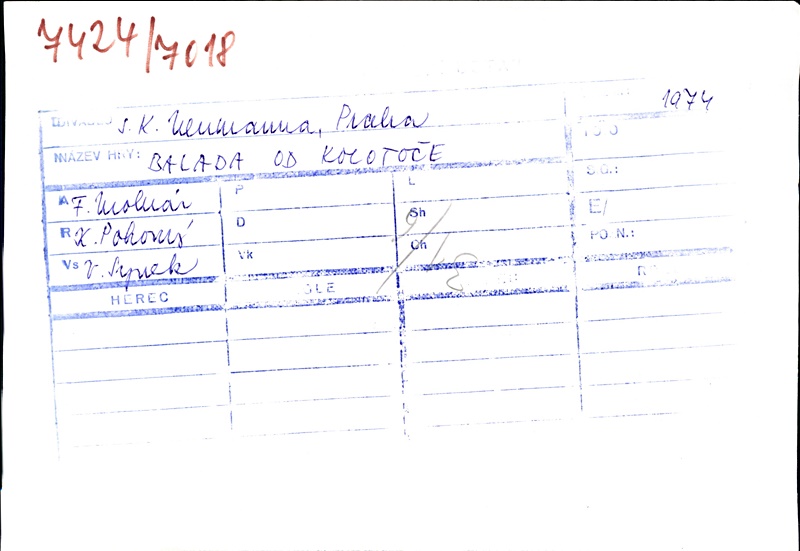 7424/7018
1974
DIVADLO S. K. Neumanna, Praha
NÁZEV HRY: BALADA OD KOLOTOČE
SG.:
A F. Molnár P L
E/
R K. Pokorný D Sh
PO.N.:
Vs V. Synek Vk Ch
HEREC